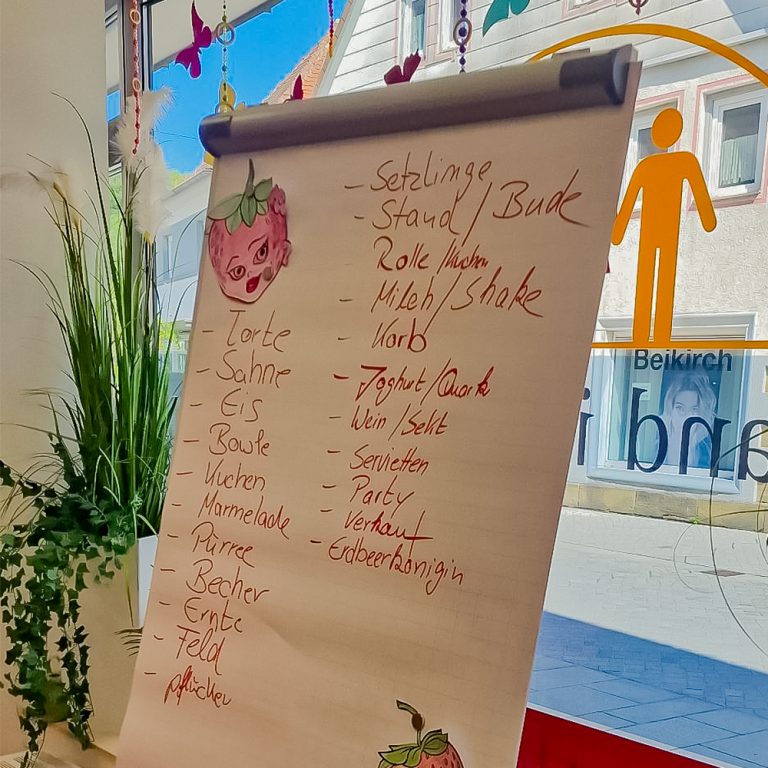 - Torte
- Sahne
- Eis
- Bowle
- Kuchen
- Marmelade
- Pürree
- Becher
- Ernte
- Feld
- pflücken
- Setzlinge
- Stand / Bude
Rolle / Kuchen
- Milch / Shake
- Korb
- Joghurt / Quark
- Wein / Sekt
- Servietten
- Party
- Verkauf
- Erdbeerkönigin
Beikirch